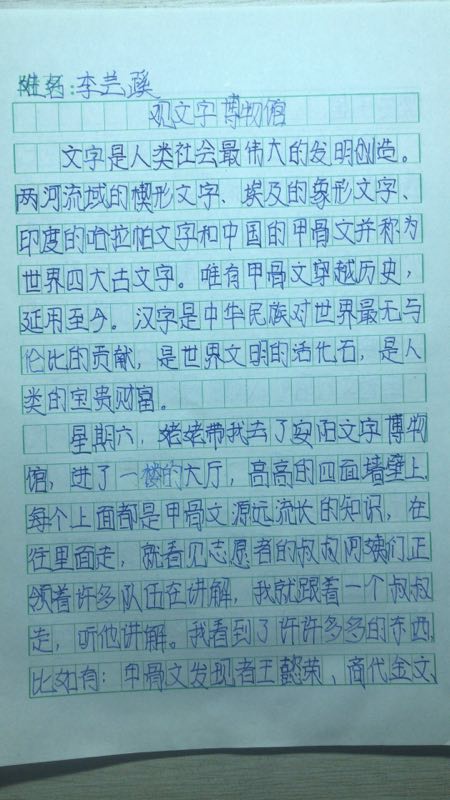 姓名:李兰蹊
观文字博物馆
文字是人类社会最伟大的发明创造。
两河流域的楔形文字、埃及的象形文字、
印度的哈拉帕文字和中国的甲骨文并称为
世界四大古文字。唯有甲骨文穿越历史,
延用至今。汉字是中华民族对世界最无与
伦比的贡献,是世界文明的活化石,是人
类的宝贵财富。
星期六,姥姥带我去了安阳文字博物
馆,进了一楼的大厅,高高的四面墙壁上,
每个上面都是甲骨文源远流长的知识,在
往里面走,就看见志愿者的叔叔阿姨们正
领着许多队伍在讲解,我就跟着一个叔叔
走,听他讲解。我看到了许许多多的东西,
比如有:甲骨文发现者王懿荣、商代金文、